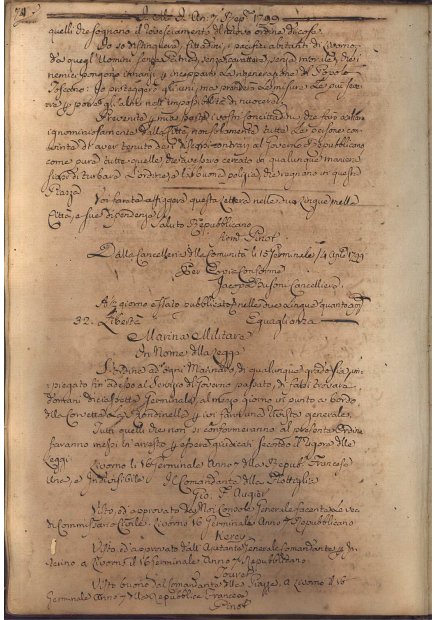 70
quelli che sognano il rovesciamento del nuovo ordine di cose.
Io so distinguere, Cittadini, i pacifici abitanti di Livorno
da quegl'Uomini senza Patria, senza carattere, senza morale, che
nemici pongono inciampi, e inceppano la rigenerazione del Popolo
Toscano. Io proteggerò gli uni, ma prenderò le misure le più seve
re per porre gl'altri nell'impossibilità di nuocere.
Prevenite i vostri concittadini che farò
ignominiosamente dalla Città, non solamente tutte le persone con
vinte d'aver tenuto dei discorsi contrarj al Governo Repubblicano
come pure tutte quelle, che avessero cercato in qualunque maniera
di turbare l'ordine e la buona polizia, che regnano in questa
Piazza
Voi farete affiggere questa Lettera nelle due Lingue nella
Città, e sue dipendenze.
Saluto Repubblicano
Pinot
Dalla Cancelleria della Comunità li 15 Germinale / 4 Aple 1799
Per Copia Conforme
Jacopo Cancelliere
giorno è stato pubblicato nelle due Lingue quanto sopra
32. Libertà Eguaglianza
Marina Militare
In Nome della Legge
Ordine ad ogni Marinaro di qualunque grado sia im-
piegato fin adesso al Servizio del Governo passato, di farsi trovare
Germinale, al mezzo giorno in punto a bordo
della Corvetta la Rondinella per ivi farsi una Rivista generale.
Tutti quelli che non si conformeranno al presente Ordine
saranno messi in arresto per essere giudicati secondo il Rigore delle
Leggi
Livorno li 16 Germinale Anno 7 della Repub. Francese
Una, e Indivisibile. Il Comandante della Flottiglia
Gio. F. Augier
Visto, ed approvato da Noi Console Generale facente le veci
di Commissario Civile. Livorno 16 Germinale Anno 7 Repubblicano
Visto ed approvato dall'Ajutante Generale Comandante
Livorno 16 Germinale Anno 7 Repubblicano
Visto buono dal Comandante della Piazza, a Livorno il 16
Germinale Anno 7 della Repubblica Francese
Pinot